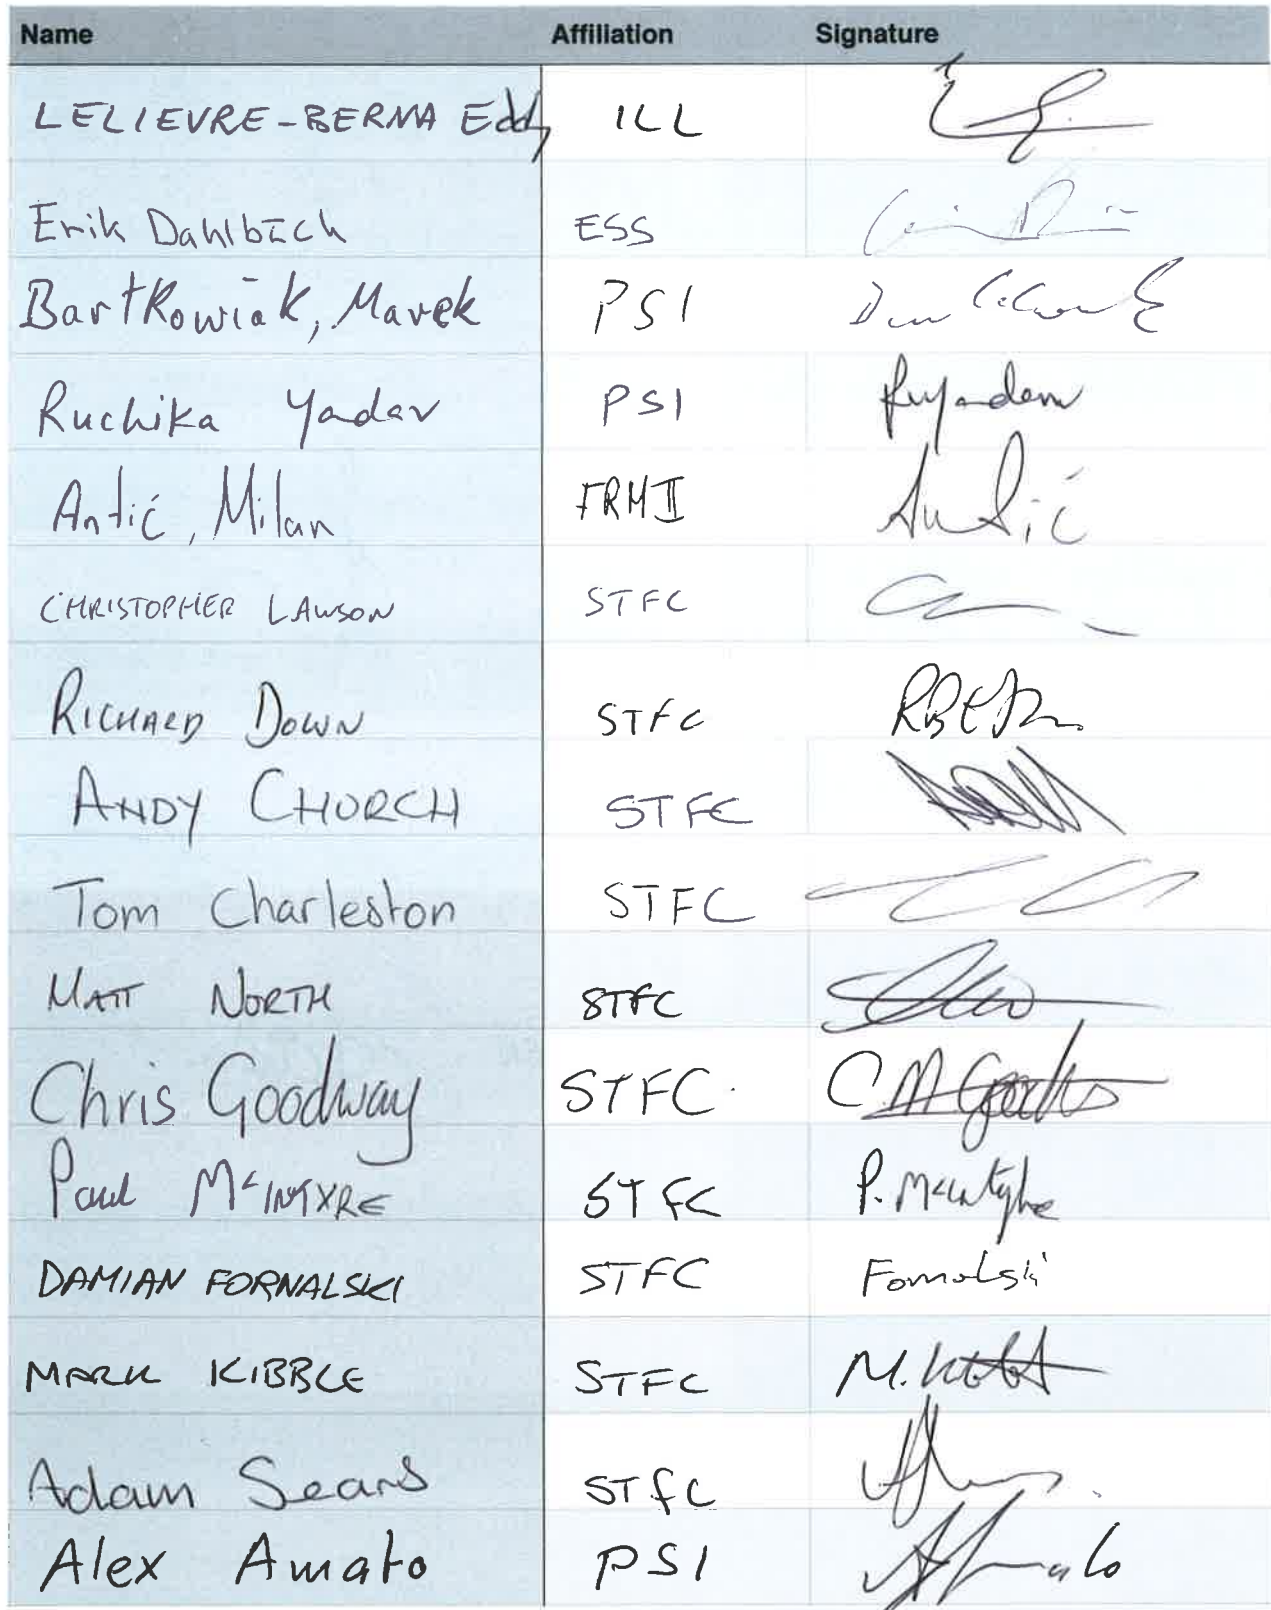 Name Affiliation Signature
LELIEVRE-BERNA Eddy ILL
Erik Dahlbäck ESS
Bartkowiak, Marek PSI
Ruchika Yadav PSI Ryadav
Antić, Milan FRMII Antić
CHRISTOPHER LAWSON STFC
RICHARD DOWN STFC
ANDY CHURCH STFC
Tom Charleston STFC
MATT NORTH STFC
Chris Goodway STFC C M Goodway
Paul McINTYRE STFC P. McIntyre
DAMIAN FORNALSKI STFC Fornalski
MARK KIBBLE STFC M. Kibble
Adam Sears STFC
Alex Amato PSI A Amato